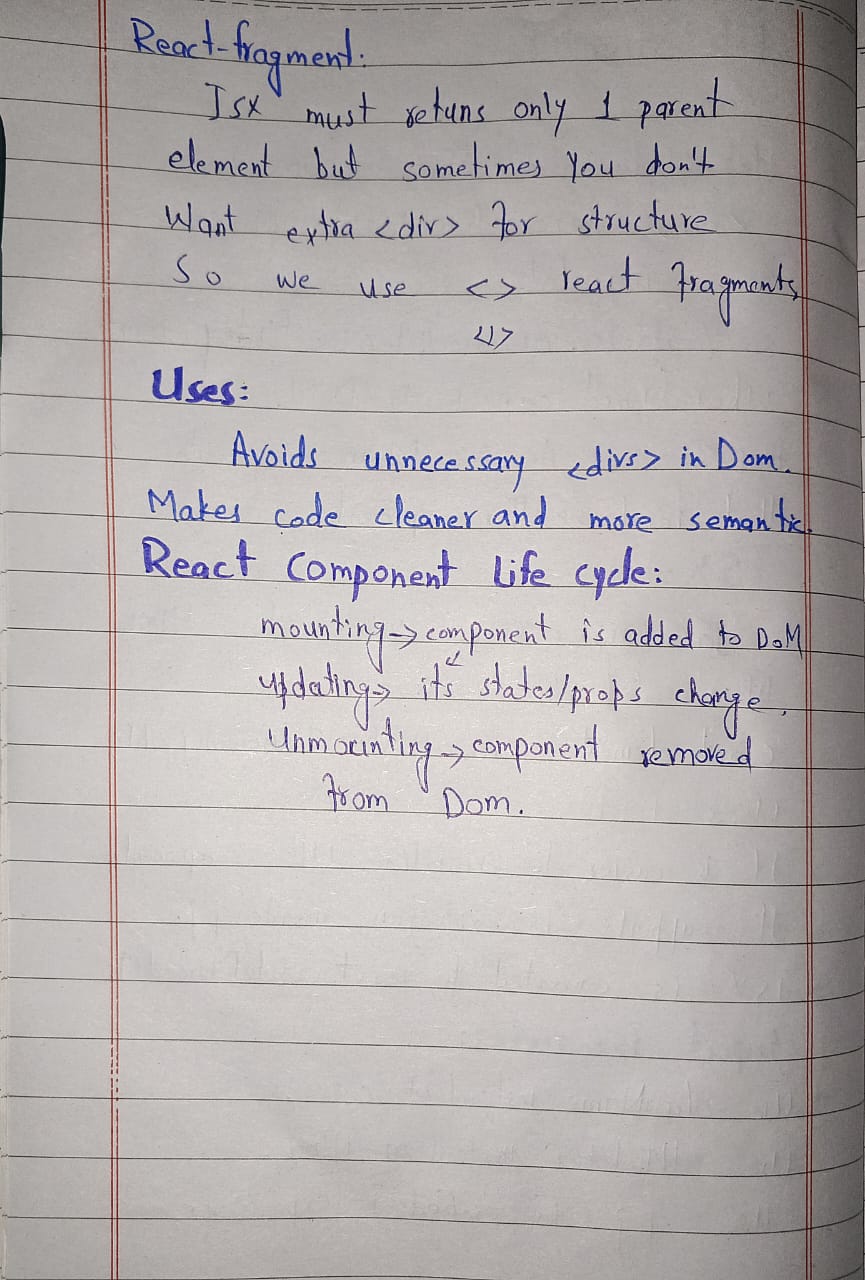 React-fragment:
Jsx must retuns only 1 parent
element but sometimes you don't
Want extra <div> for structure
So we use <> react fragments
</>
Uses:
Avoids unnecessary <divs> in Dom.
Makes code cleaner and more semantic.
React Component Life cycle:
mounting → component is added to DoM
updating → its states/props change.
Unmounting → component removed
from Dom.